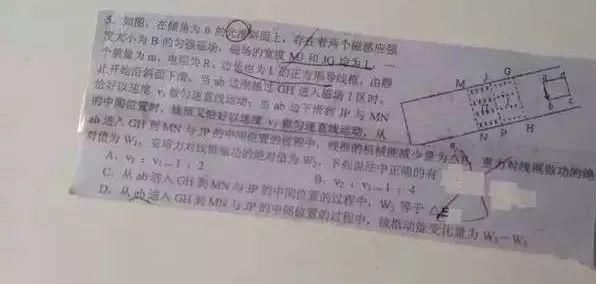 5．如图，在倾角为 θ 的光滑斜面上，存在着两个磁感应强
度大小为 B 的匀强磁场，磁场的宽度 MJ 和 JG 均为 L，一
个质量为 m、电阻为 R、边长也为 L 的正方形导线框，由静
止开始沿斜面下滑，当 ab 边刚越过 GH 进入磁场 I 区时，
恰好以速度 v₁ 做匀速直线运动；当 ab 边下滑到 JP 与 MN
的中间位置时，线框又恰好以速度 v₂ 做匀速直线运动，从
ab 进入 GH 到 MN 与 JP 的中间位置的过程中，线框的机械能减少量为 △E，重力对线框做功的绝
对值为 W₁，安培力对线框做功的绝对值为 W₂，下列说法中正确的有
A．v₂：v₁=1：2
B．v₂：v₁=1：4
C．从 ab 进入 GH 到 MN 与 JP 的中间位置的过程中，W₂ 等于 △E
D．从 ab 进入 GH 到 MN 与 JP 的中间位置的过程中，线框动能变化量为 W₁－W₂
M J G
N P H
a
b c